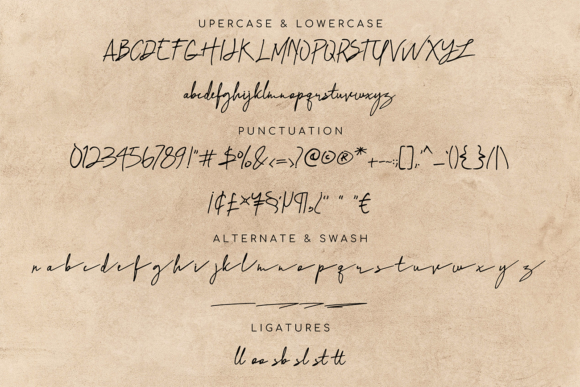 UPERCASE & LOWERCASE
ABCDEFGHIJKLMNOPQRSTUVWXYZ
abcdefghijklmnopqrstuvwxyz
PUNCTUATION
0123456789!"#$%&<=>?@©®*+-~:;[],'^_`(){}/|\
¡¢£¤¥§¨µ¶¸‘’“”€
ALTERNATE & SWASH
n a b c d e f g h i j k l m n o p q r s t u v w x y z
LIGATURES
ll oo sb sl st tt